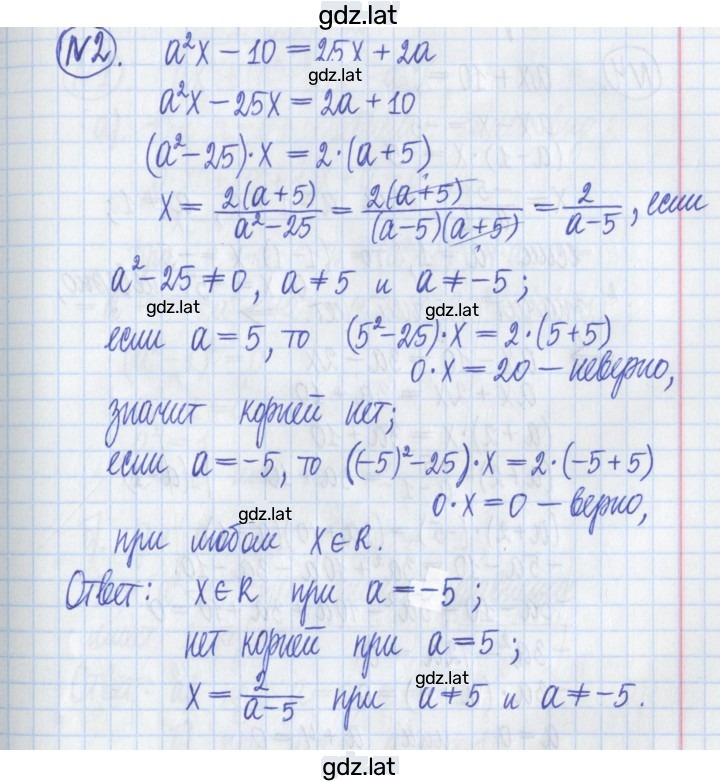 gdz.lat
№2. a²x − 10 = 25x + 2a
gdz.lat
a²x − 25x = 2a + 10
(a² − 25)·x = 2·(a + 5)
x = 2(a+5)/(a²−25) = 2(a+5)/((a−5)(a+5)) = 2/(a−5), если
a² − 25 ≠ 0, a ≠ 5 и a ≠ −5;
gdz.lat gdz.lat
если a = 5, то (5² − 25)·x = 2·(5+5)
0·x = 20 − неверно,
значит корней нет;
если a = −5, то ((−5)² − 25)·x = 2·(−5+5)
0·x = 0 − верно,
gdz.lat
при любом x ∈ R.
Ответ: x ∈ R при a = −5;
нет корней при a = 5;
gdz.lat
x = 2/(a−5) при a ≠ 5 и a ≠ −5.
gdz.lat